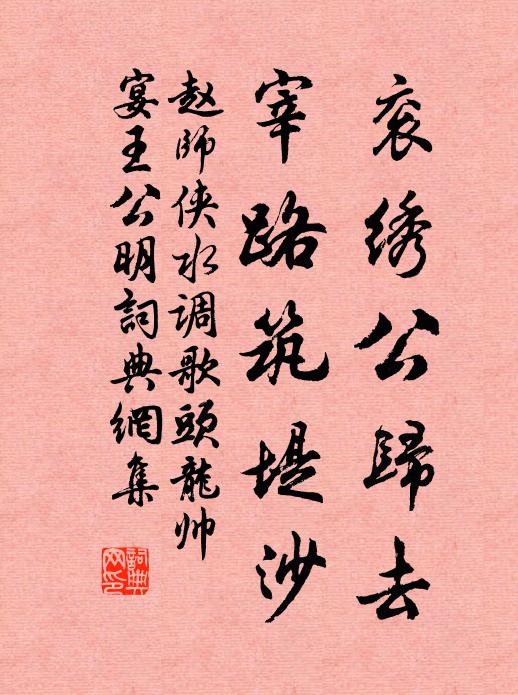 衮绣公歸去
宰路筑堤沙
赵師侠水调歌頭龍帅
宴王公明詞典網集
詞典网印